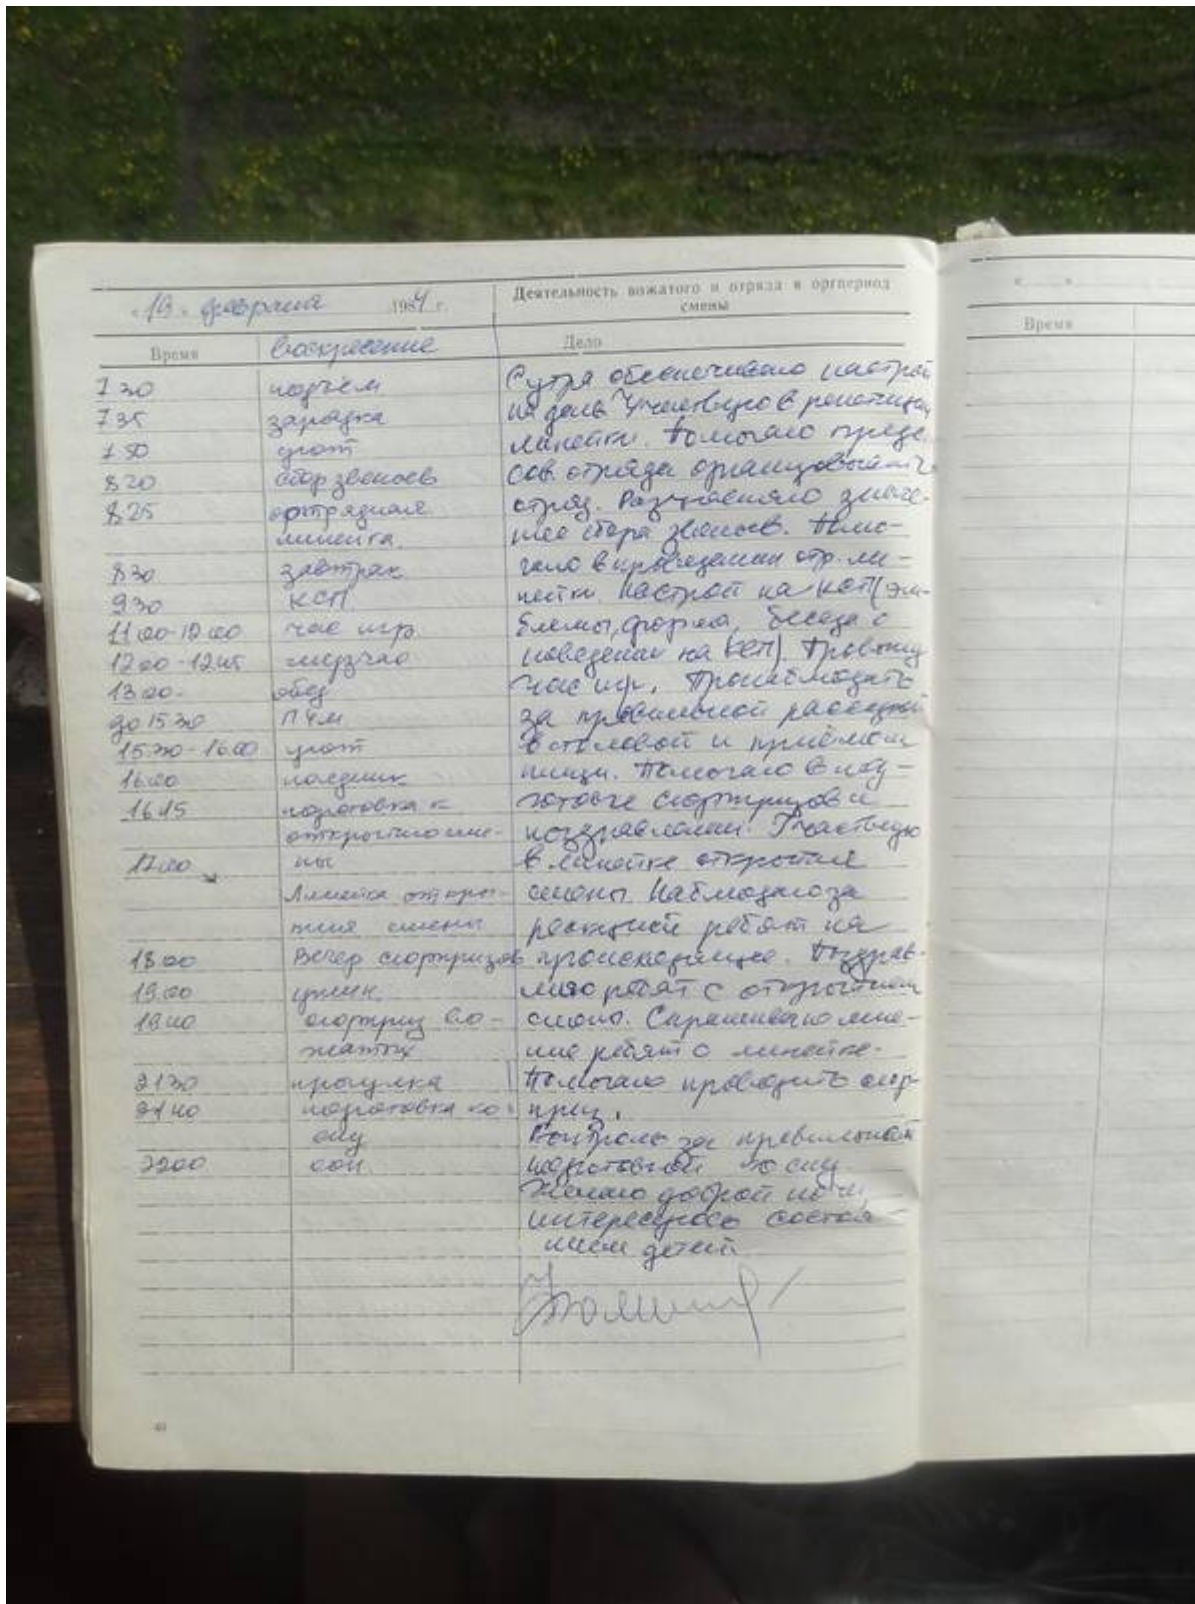 « 19 » февраля 1984 г.
Деятельность вожатого и отряда в оргпериод
смены
Время
воскресение
Дело
7 30 подъем
С утра обеспечиваю настрой
7 35 зарядка
на день. Участвую в репетиции
7 50
линейки. Помогаю предс.
8 20 сбор звеньев
сов. отряда организовывать
8 25 отрядная
отряд. Разъясняю значе-
линейка.
ние сбора звеньев. Помо-
8 30 завтрак
гаю в проведении отр. ли-
9 30 КСП
нейки. Настрой на КСП (эм-
11 00-12 00 час игр.
блемы, форма, беседа о
12 00-12 45 музчас
поведении на КСП). Провожу
13 00- обед
час игр.
до 15 30
за правильной рассадкой
15.30-16.00
в столовой и приёмом
16.00 полдник
пищи. Помогаю в под-
16.15 подготовка к
готовке сюрпризов и
открытию сме-
поздравлений. Участвую
17.00 ны
в линейке открытия
Линейка откры-
смены. Наблюдаю за
тия смены
реакцией ребят на
18 00 Вечер сюрпризов
происходящее. Поздрав-
19.00 ужин
ляю ребят с открытием
сюрприз во-
смены. Спрашиваю мне-
жатых
ние ребят о линейке.
21 30 прогулка
Помогаю проводить сюр-
21 40 подготовка ко
приз.
сну
Контроль за правильной
22 00 сон.
подготовкой ко сну.
Желаю доброй ночи,
интересуюсь состоя-
нием детей
Время